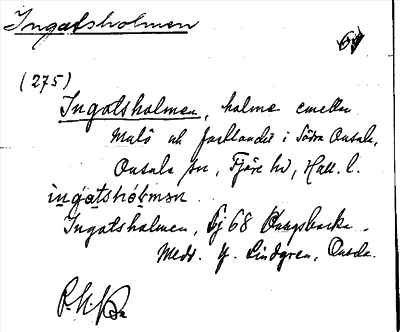 Ingatsholmen
(275)
Ingatsholmen, holme emellan
Malö och fastlandet i Södra Onsala,
Onsala sn, Fjäre hd, Hall. l.
ingatshòlmen
Ingatsholmen, Gj 68 Kungsbacka.
Medd. Lindgren, Onsala.